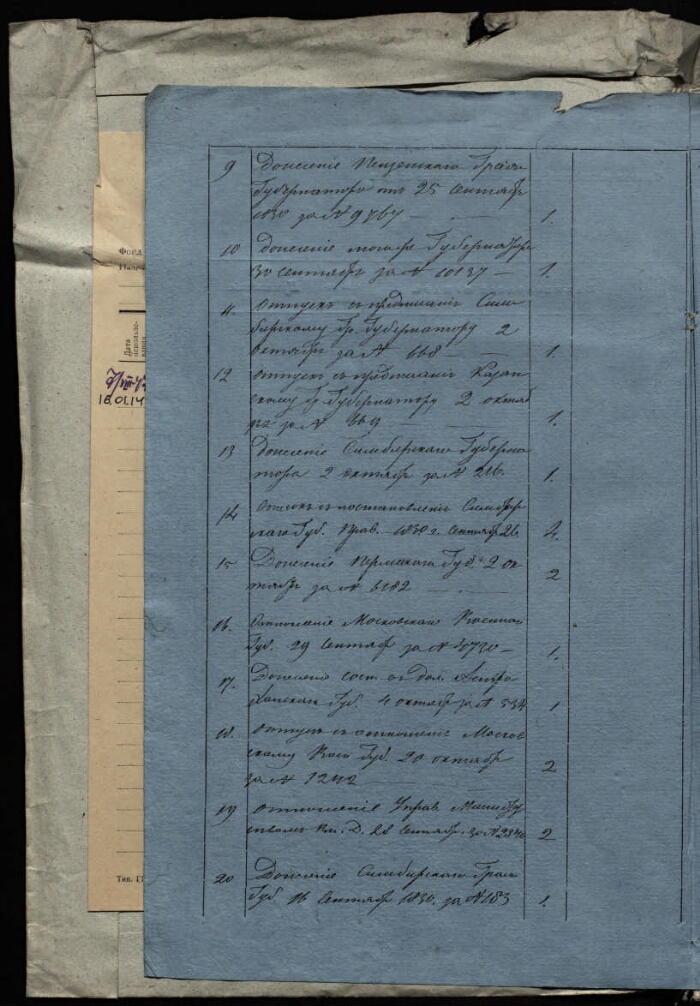 Фонд
Дата использования
18.01.14
Тип. П
9 Донесенiе Пензенскаго Граж.
Губернатора отъ 25 Сентября
1830 за № 9767 — 1.
10 Донесенiе Губернатора
30 Сентября за № 10137 — 1.
11. Отпускъ съ предписанiя Симбирскому Гр. Губернатору 2
Октября за № 668 — 1.
12 Отпускъ съ предписанiя Казанскому Гр. Губернатору 2 октября за № 669 1.
13 Донесенiе Симбирскаго Губернатора 2 октября за № 216. 1.
14 съ постановленiя Симбирскаго Губ. Прав. 1830 г. Сентября 26 4.
15 Донесенiе Пермскаго Губ. 2 октября за № 6182 — 2
16. Отношенiе Московскаго Военнаго
Губ. 29 Сентября за № — 1.
17. Донесенiе сост. въ дол. Астраханскаго Губ. 4 октября за № 534 1
18. Отпускъ съ отношенiя Московскому Воен. Губ. 20 октября
за № 1242 2
19 Отношенiе Управ. Министерствомъ Вн. Д. 28 Сентября за № 2
20 Донесенiе Симбирскаго Граж.
Губ. 16 Сентября 1830. за № 183 1.